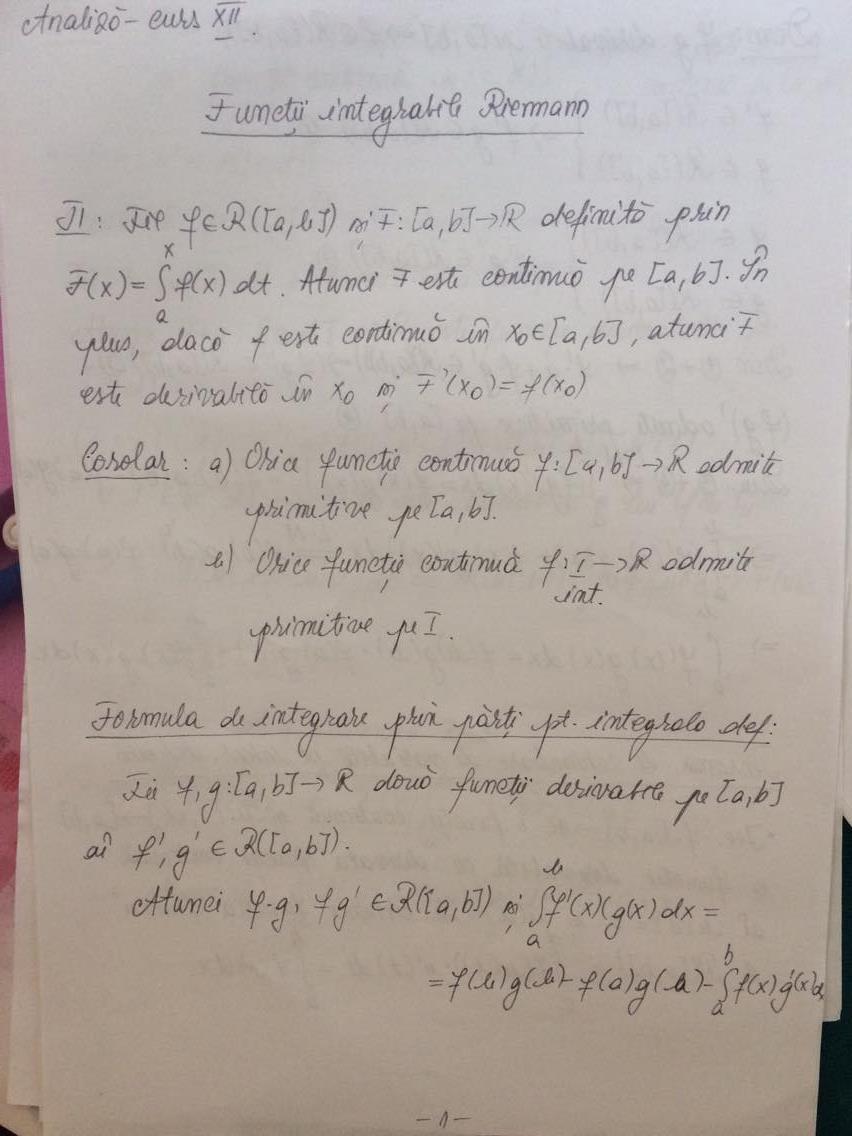 Analiză - curs XII.
Funcții integrabile Riemann
T1: Fie f∈R([a,b]) și F:[a,b]→R definită prin
F(x)=∫ₐˣ f(x) dt. Atunci F este continuă pe [a,b]. În
plus, dacă f este continuă în x₀∈[a,b], atunci F
este derivabilă în x₀ și F'(x₀)=f(x₀)
Corolar: a) Orice funcție continuă f:[a,b]→R admite
primitive pe [a,b].
b) Orice funcție continuă f:I→R admite
int.
primitive pe I.
Formula de integrare prin părți pt. integrala def:
Fie f,g:[a,b]→R două funcții derivabile pe [a,b]
aî f',g'∈R([a,b]).
Atunci f·g, fg'∈R([a,b]) și ∫ₐᵇ f'(x)(g(x) dx =
=f(b)g(b)-f(a)g(a)-∫ₐᵇ f(x)g'(x)d
-1-